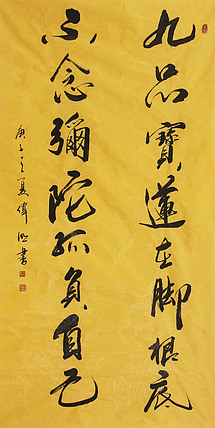 九品寶蓮在脚根底
不念彌陀孤負自己
庚子之夏偉